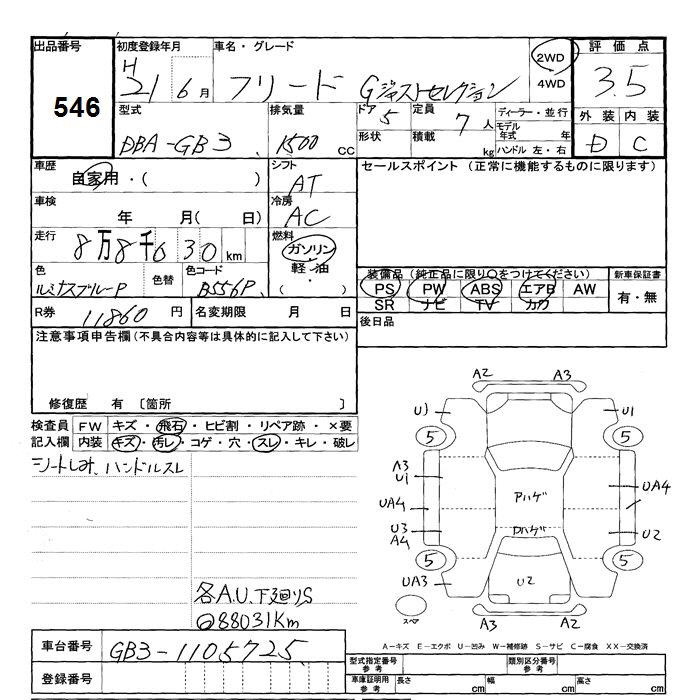 出品番号
546
初度登録年月
H 21 6月
車名・グレード
フリード Gジャストセレクション
2WD
4WD
評価点
3.5
外装 内装
D C
型式
DBA-GB3
排気量
1500 CC
ドア 5
形状
定員 7人
積載 kg
ディーラー・並行
モデル年式 年
ハンドル 左・右
車歴
自家用・( )
シフト
AT
セールスポイント (正常に機能するものに限ります)
車検
年 月( 日)
冷房
AC
走行
8万8千630km
燃料
ガソリン
軽・油
・( )
色
ルミナスブルーP
色替
色コード
B556P
装備品(純正品に限り○をつけてください)
PS PW ABS エアB AW
SR ナビ TV カワ
新車保証書
有・無
R券 11860円
名変期限 月 日
後日品
注意事項申告欄(不具合内容等は具体的に記入して下さい)
修復歴 有 〔箇所 〕
検査員 FW キズ・飛石・ヒビ割・リペア跡・×要
記入欄 内装 キズ・汚レ・コゲ・穴・スレ・キレ・破レ
シートしみ、ハンドルスレ
各A.U.下廻りS
88031Km
A2 A3
U1 U1
5 5
A3
U1
UA4 UA4
アハゲ
U3
A4
アハゲ
U2
5 5
UA3
U2
スペア
A3 A2
A-キズ E-エクボ U-凹み W-補修跡 S-サビ C-腐食 XX-交換済
車台番号 GB3-1105725
登録番号
型式指定番号 参考
類別区分番号 参考
車庫証明用 参考 長さ cm 幅 cm 高さ cm